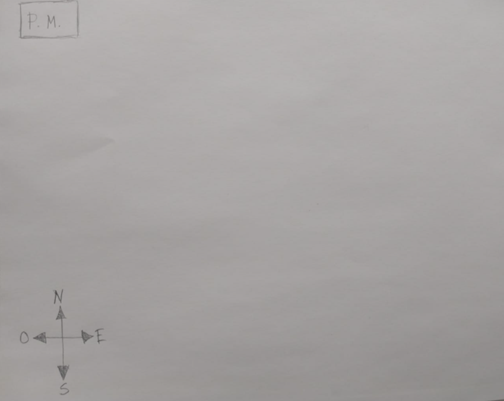 P.M.
N
O E
S